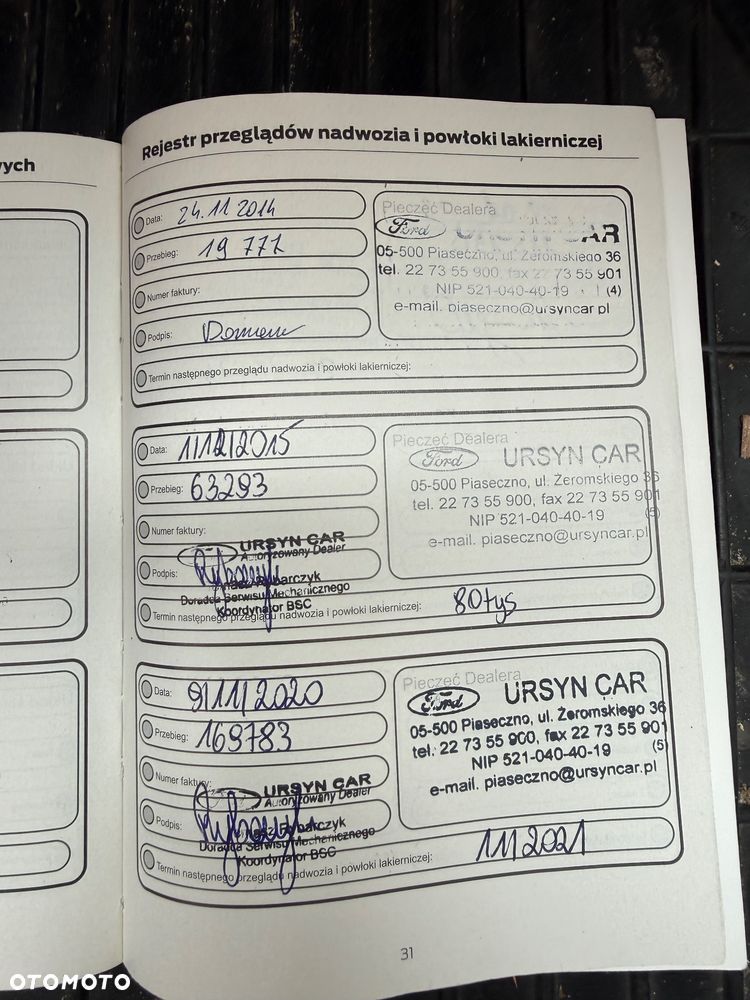 wych
Rejestr przeglądów nadwozia i powłoki lakierniczej
Data: 24.11 2014
Przebieg: 19 777
Numer faktury:
Podpis:
Termin następnego przeglądu nadwozia i powłoki lakierniczej:
Pieczęć Dealera
Ford URSYN CAR
05-500 Piaseczno, ul. Żeromskiego 36
tel. 22 73 55 900, fax 22 73 55 901
NIP 521-040-40-19 (4)
e-mail. piaseczno@ursyncar.pl
Data: 1/12/2015
Przebieg: 63293
Numer faktury:
Podpis:
URSYN CAR
Autoryzowany Dealer
Rybarczyk
Doradca Serwisu Mechanicznego
Koordynator BSC
Termin następnego przeglądu nadwozia i powłoki lakierniczej: 80tys
Pieczęć Dealera
Ford URSYN CAR
05-500 Piaseczno, ul. Żeromskiego 36
tel. 22 73 55 900, fax 22 73 55 901
NIP 521-040-40-19 (5)
e-mail. piaseczno@ursyncar.pl
Data: 9/11/2020
Przebieg: 169783
Numer faktury:
Podpis:
URSYN CAR
Autoryzowany Dealer
Rybarczyk
Doradca Serwisu Mechanicznego
Koordynator BSC
Termin następnego przeglądu nadwozia i powłoki lakierniczej: 11/2021
Pieczęć Dealera
Ford URSYN CAR
05-500 Piaseczno, ul. Żeromskiego 36
tel. 22 73 55 900, fax 22 73 55 901
NIP 521-040-40-19 (5)
e-mail. piaseczno@ursyncar.pl
31
OTOMOTO